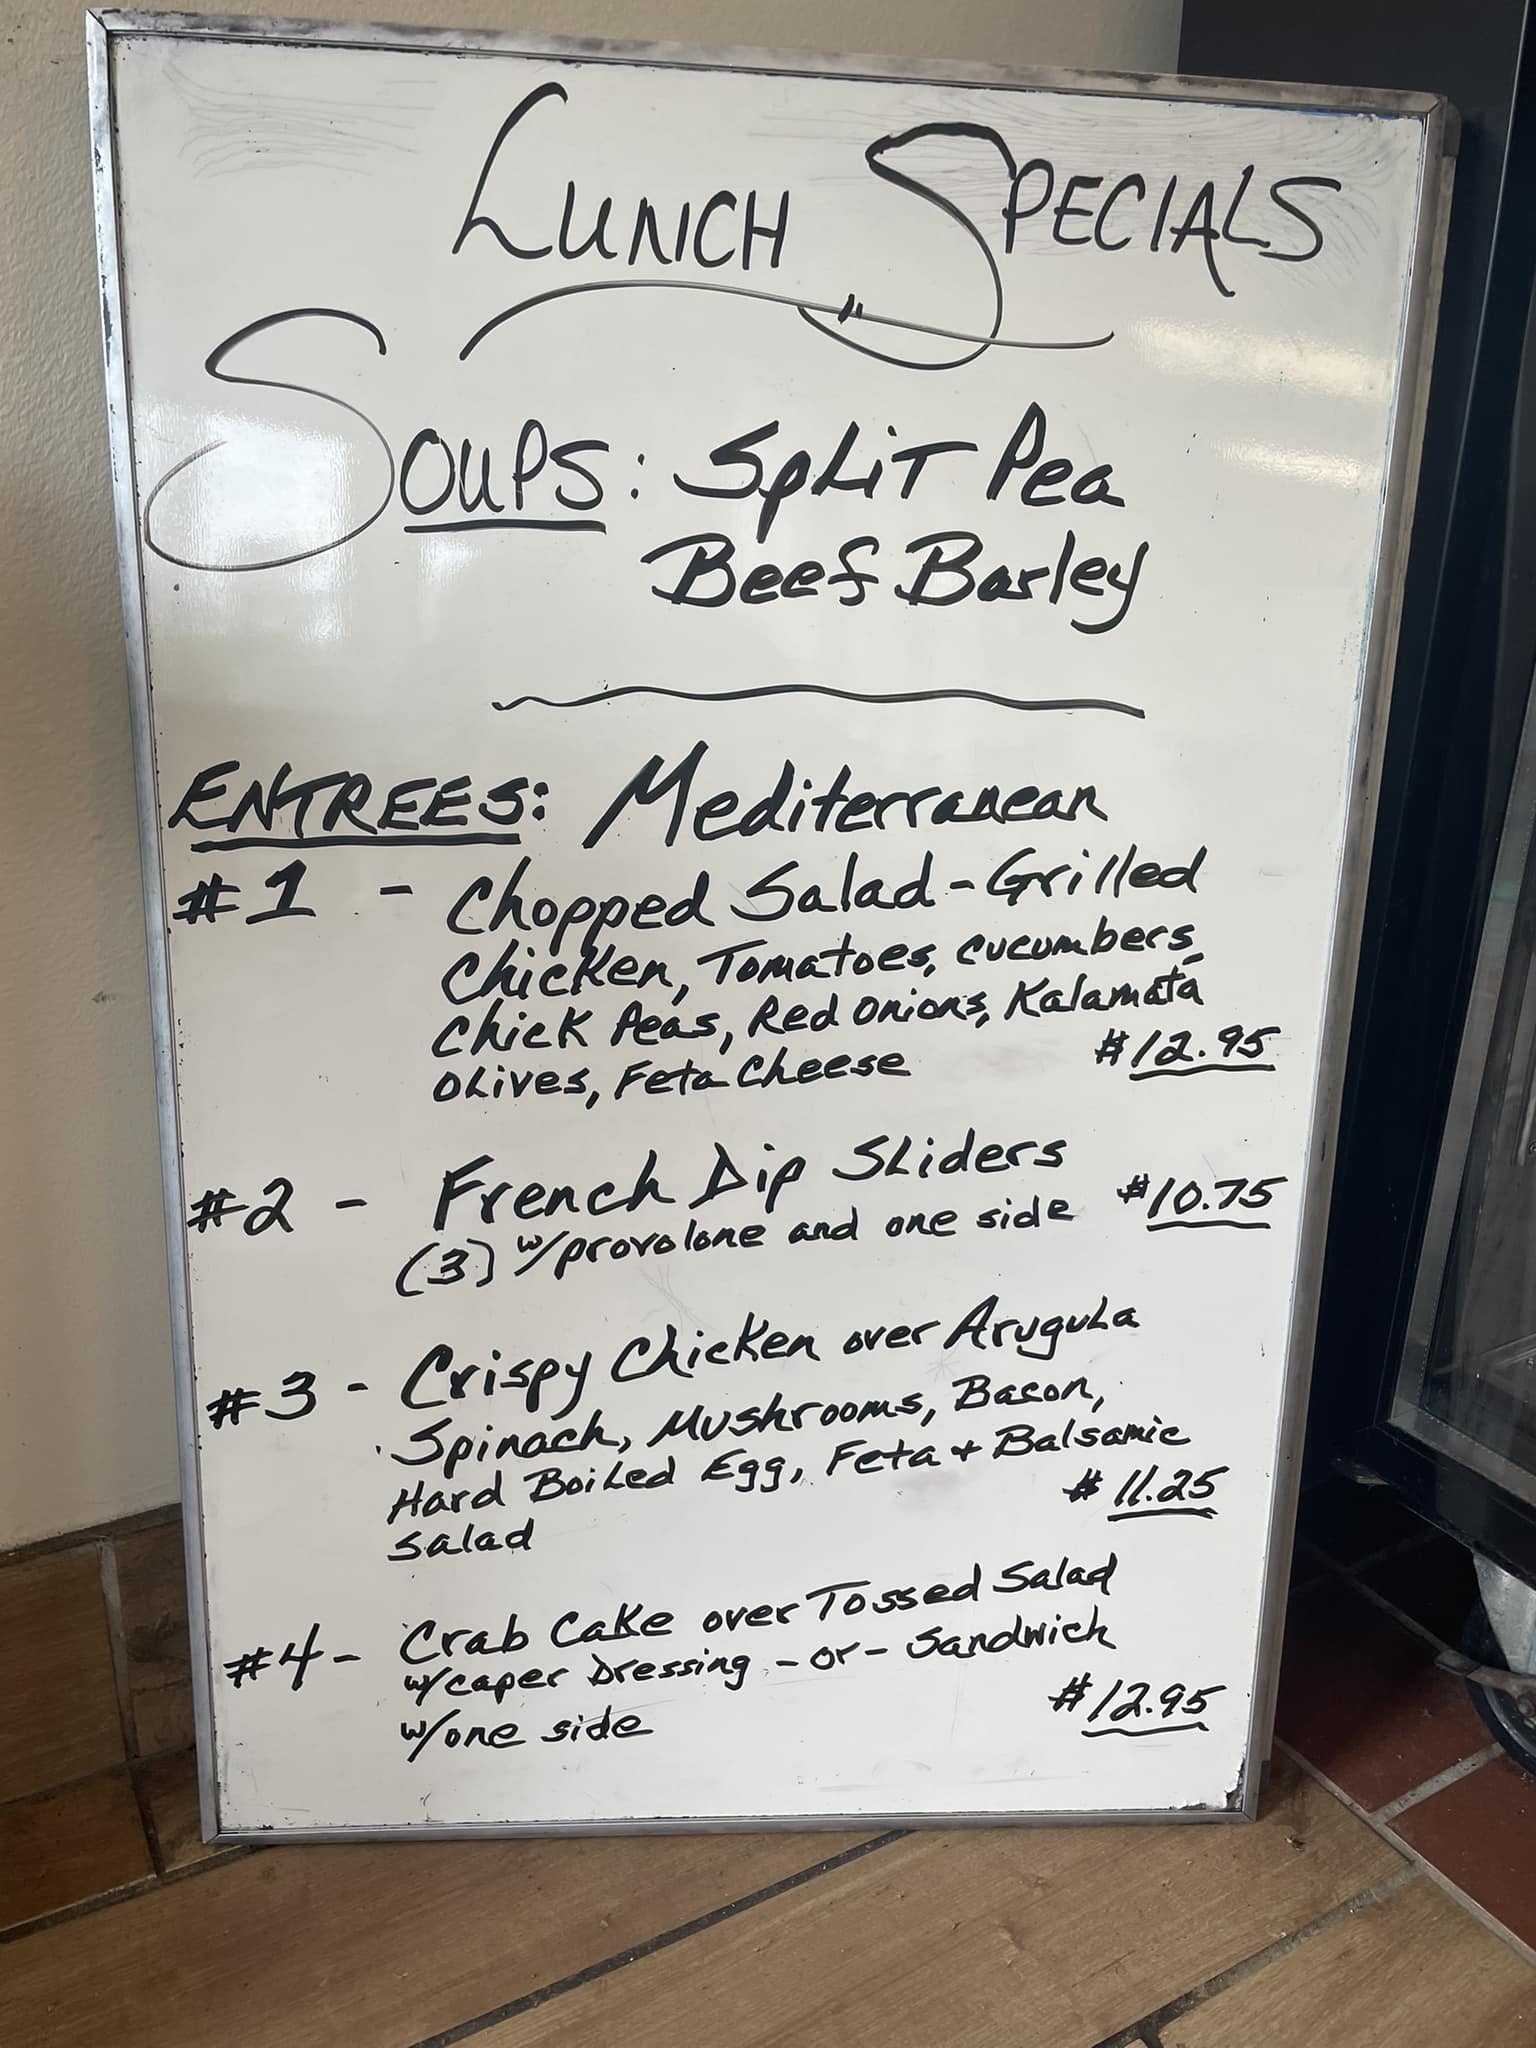 LUNCH SPECIALS
SOUPS: SpLiT Pea
Beef Barley
ENTREES: Mediterranean
#1 - Chopped Salad - Grilled
Chicken, Tomatoes, cucumbers,
Chick Peas, Red Onions, Kalamata
OLives, Feta Cheese $12.95
#2 - French Dip SLiders
(3) w/provolone and one side $10.75
#3 - Crispy Chicken over AruguLa
Spinach, Mushrooms, Bacon,
Hard BoiLed Egg, Feta + Balsamic
Salad $11.25
#4 - Crab Cake over Tossed Salad
w/caper Dressing - or - Sandwich
w/one side $12.95